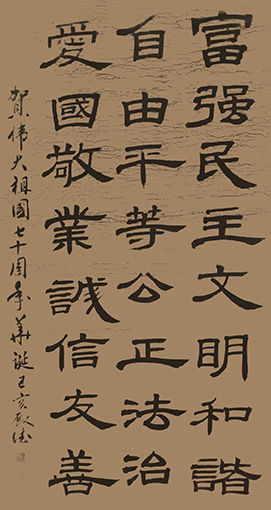 富强民主文明和諧
自由平等公正法治
愛國敬業誠信友善
賀偉大祖國七十周年華誕己亥